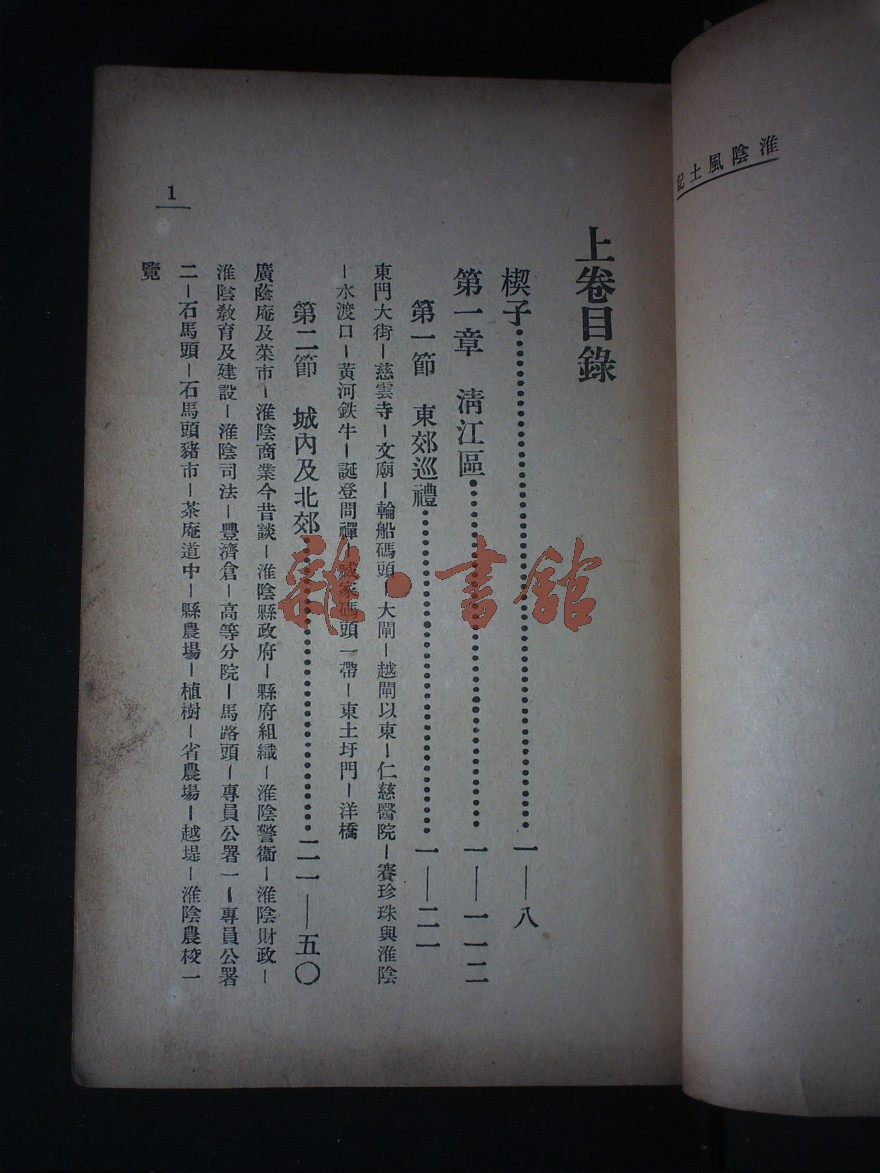 淮陰風土記
上卷目錄
楔子………一—八
第一章　清江區………一—一一二
第一節　東郊巡禮………一—二一
東門大街—慈雲寺—文廟—輪船碼頭—大閘—越閘以東—仁慈醫院—賽珍珠與淮陰
—水渡口—黃河鉄牛—誕登問禪—臧家碼頭一帶—東土圩門—洋橋
第二節　城內及北郊………二一—五〇
廣蔭庵及菜市—淮陰商業今昔談—淮陰縣政府—縣府組織—淮陰警衞—淮陰財政—
淮陰敎育及建設—淮陰司法—豐濟倉—高等分院—馬路頭—專員公署一—專員公署
二—石馬頭—石馬頭豬市—茶庵道中—縣農場—植樹—省農場—越堤—淮陰農校一
覽
1
龍·書館